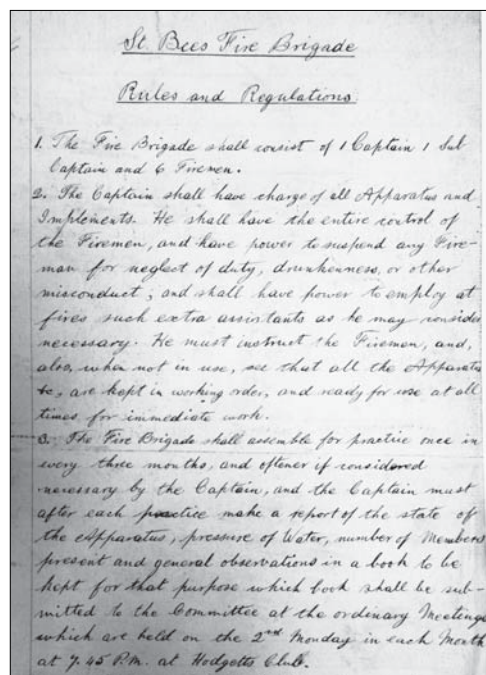 St. Bees Fire Brigade
Rules and Regulations
1. The Fire Brigade shall consist of 1 Captain 1 Sub
Captain and 6 Firemen.
2. The Captain shall have charge of all Apparatus and
Implements. He shall have the entire control of
the Firemen, and have power to suspend any Fire-
man for neglect of duty, drunkenness, or other
misconduct; and shall have power to employ at
fires such extra assistants as he may consider
necessary. He must instruct the Firemen, and,
also, when not in use, see that all the Apparatus
&c, are kept in working order, and ready for use at all
times for immediate work.
3. The Fire Brigade shall assemble for practice once in
every three months, and oftener if considered
necessary by the Captain, and the Captain must
after each practice make a report of the state of
the Apparatus, pressure of Water, number of Members
present and general observations in a book to be
kept for that purpose which book shall be sub-
mitted to the Committee at the ordinary Meetings
which are held on the 2nd Monday in each Month
at 7.45 P.M. at Hodgetts Club.